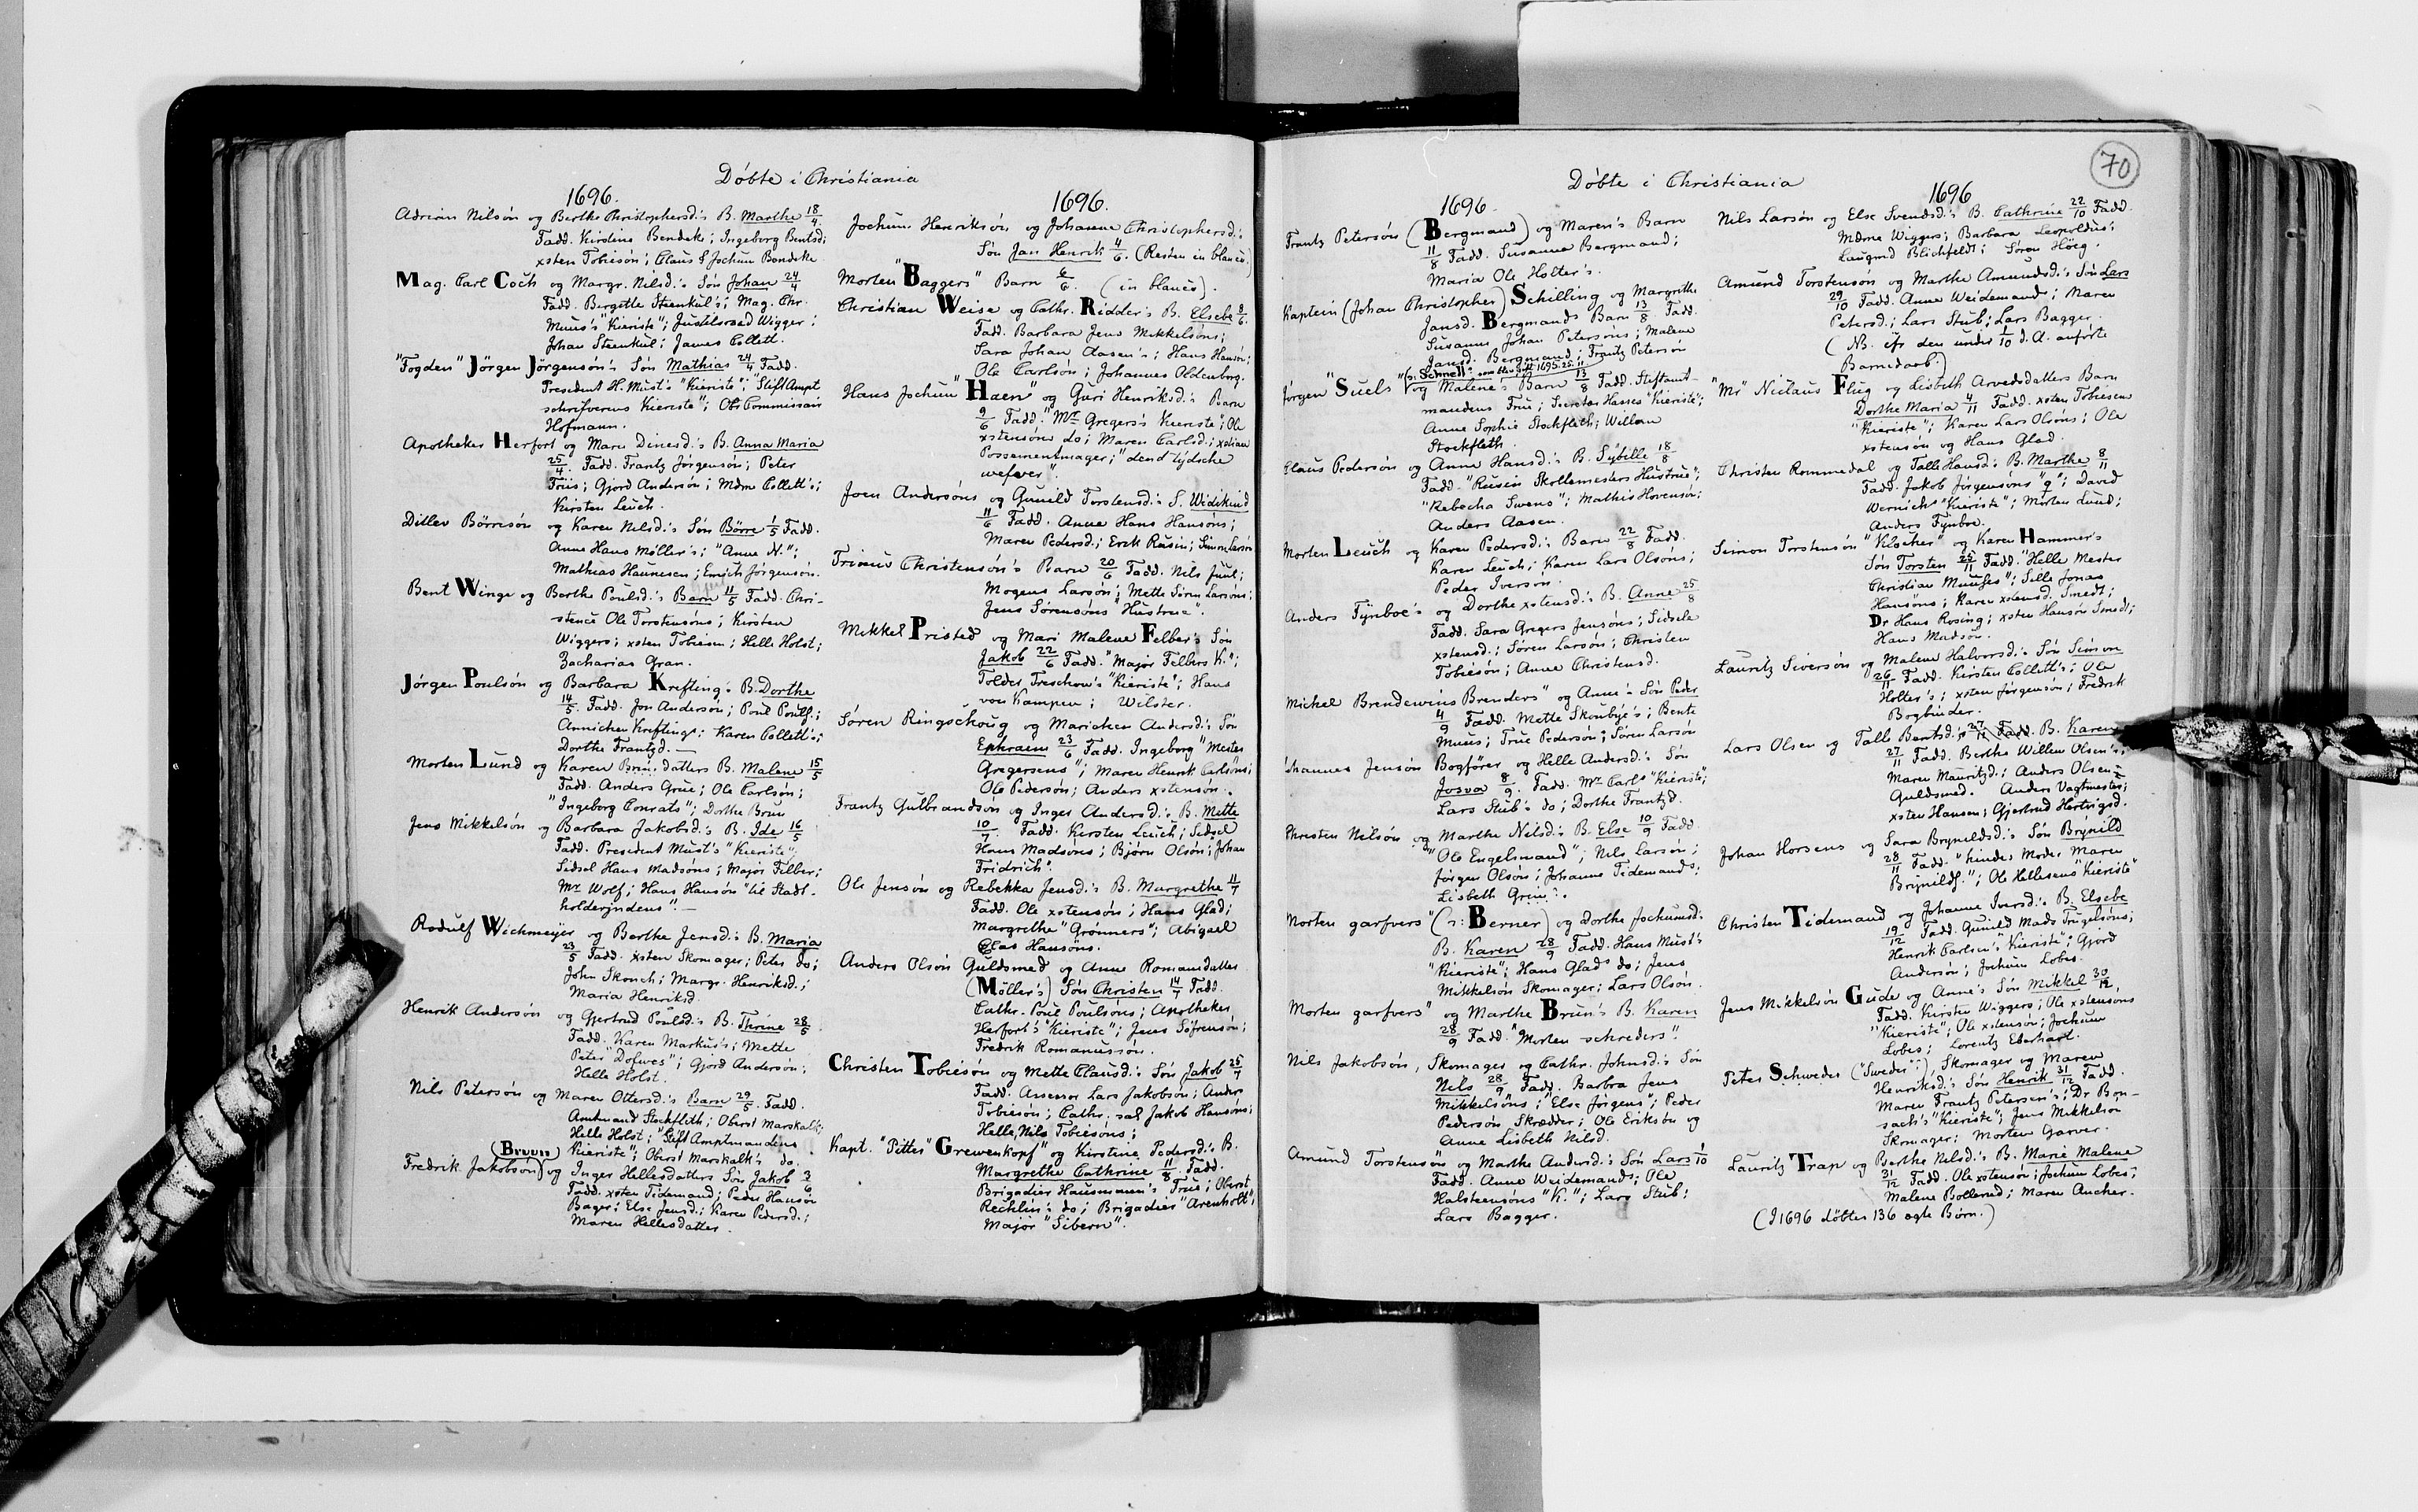 Döbte i Christiania
1696.
Adrian Nilsön og Berthe Christophersd.'s B. Marthe 18/4.
Fadd. Kirstine Bendeke; Ingeborg Bentsd;
xsten Tobiesön; Claus & Jochum Bendeke
Mag. Carl Coch og Margr. Nilsd.'s Sön Johan 24/4
Fadd. Birgitte Steenkul's; Mag. Chr.
Muus's "Kieriste"; Justitsraad Wigger;
Johan Steenkul; James Collett.
"Fogden" Jörgen Jörgensön's Sön Mathias 24/4 Fadd.
President H. Must's "Kieriste"; "Stift Ampt
schrifverens Kieriste"; Ob: Commissair
Hofmann.
Apotheker Herfort og Maren Dinesd.'s B. Anna Maria
25/4. Fadd. Frantz Jörgensön; Peter
Friis; Gjord Andersön; Mdm Collett's;
Kirsten Leuch.
Ditlev Börresön og Karen Nilsd.'s Sön Börre 1/5 Fadd.
Anne Hans Möller's; "Anne N.";
Mathias Hannesen; Jörgensön.
Bent Winge og Berthe Poulsd.'s Barn 11/5 Fadd. Chri-
stence Ole Torstensöns; Kirsten
Wiggers; xsten Tobiesen; Helle Holst;
Zacharias Gran.
Jörgen Poulsön og Barbara Krefting's B. Dorthe
14/5 Fadd. Jon Andersön; Poul Poulss.;
Annichen Kreftings; Karen Collett's;
Dorthe Frantzd.—
Morten Lund og Karen Bruns datters B. Malene 15/5
Fadd. Anders Grue; Ole Carlsön;
"Ingeborg Conrats"; Dorthe Brun
Jens Mikkelsön og Barbara Jakobsd.'s B. Ide 16/5
Fadd. President Must's "Kieriste";
Sidsel Hans Madsöns; Major Felber;
Mr Wolf; Hans Hansön "til Stadt-
holderyndens".—
Rodulf Wichmeyer og Berthe Jensd.'s B. Maria
23/5 Fadd. xsten Skomager; Peter do;
John Skonch; Margr. Henriksd.;
Maria Henriksd.
Henrik Andersön og Gjertrud Poulsd.'s B. Thrine 28/5
Fadd. Karen Markus's; Mette
Peter "Dofwes"; Gjord Andersön;
Helle Holst.
Nils Petersön og Maren Ottersd.'s Barn 29/5. Fadd.
Amtmand Stockfleth; Oberst Marskalk;
Helle Holst; "Stift Amptmandens
Kieriste"; Oberst Marskalk's do.
Fredrik Jakobsön (Bruun) og Inger Hellesdatters Sön Jakob 3/6
Fadd. xsten Tidemand; Peder Hansön
Bager; Else Jensd.; Karen Pedersd.;
Maren Hellesdatter.
1696.
Jochum Henriksön og Johanne Christophersd.'s
Sön Jan Henrik 4/6. (Resten in blanco.)
Morten "Baggers" Barn 6/6. (in blanco).
Christian Weise og Cathr. Ridder's B. Elsebe 8/6.
Fadd. Barbara Jens Mikkelsöns;
Sara Johan Aasen's; Hans Hansön;
Ole Carlsön; Johannes Oldenborg.
Hans Jochum "Haen" og Guri Henriksd.'s Barn
9/6 Fadd. "Mr Gregers's Kieriste"; Ole
xstensöns do; Maren Carlsd.; xstian
Possementmager; "dend tydsche
wefwer".
Joen Andersöns og Gunild Torstensd.'s S. Widikind
11/6 Fadd. Anne Hans Hansöns;
Maren Pedersd.; Erik Rusin; Simon Larsön
Trinus Christensön's Barn 20/6 Fadd. Nils Juul;
Mogens Larsön; Mette Siva Larsöns;
Jens Sörensöns "Hustrue".
Mikkel Pristed og Mari Malene Felber's Sön
Jakob 22/6 Fadd. "Major Felbers K.";
Tolder Treschow's "Kieriste"; Hans
von Kampen; Wilster.
Sören Ringschoug og Marichen Andersd.'s Sön
Ephraem 23/6 Fadd. Ingeborg "Mester
Gregersens"; Maren Henrik Carlsöns;
Ole Pedersön; Anders xstensön.
Frantz Gulbrandsön og Inger Andersd.'s B. Mette
10/7. Fadd. Kirsten Leuch; Sidsel
Hans Madsöns; Björn Olsön; Johan
Fridrich".
Ole Jensön og Rebekka Jensd.'s B. Margrethe 11/7
Fadd. Ole xstensön; Hans Glad;
Margrethe "Grönners"; Abigael
Clas Hansöns.
Anders Olsön Guldsmed og Anne Romansdatter
(Möller's) Sön Christen 14/7 Fadd.
Cathr. Poul Poulsöns; Apotheker
Herfort's "Kieriste"; Jens Söfrensön;
Fredrik Romanussön.
Christen Tobiesön og Mette Clausd.'s Sön Jakob 25/7
Fadd. Assessor Lars Jakobsön; Ander
Tobiesön; Cathr. sal Jakob Hansöns;
Helle, Nils Tobiesöns;
Kapt. "Pitter" Grewenkopf" og Kirstine Pedersd.'s B.
Margrethe Cathrine 11/8. Fadd.
Brigadier Hausmann's Frue; Oberst
Recklin's do; Brigadier "Arenholt";
Major "Sibern".
70
Döbte i Christiania
1696.
Frantz Petersön (Bergmand) og Maren's Barn
11/8 Fadd. Susanne Bergmand;
Maria Ole Holter's.
Kaptein (Johan Christopher) Schilling og Margrethe
Jansd. Bergmands Barn 13/8 Fadd.
Susanne Johan Petersöns; Malene
Jansd. Bergmand; Frantz Petersön
Jörgen "Suels" (ɔ: Schnell' som blev gift 1695. 25.11) og Malene's Barn 13/8 Fadd. Stiftamt-
mandens Frue; Secretær Hasses "Kieriste";
Anne Sophie Stockfleth; Willem
Stockfleth.
Claus Pedersön og Anne Hansd.'s B. Sybille 18/8
Fadd. "Rusin Skollemesters Hustrue";
"Rebecha Swens"; Mathis Hovensön;
Anders Aasen.
Morten Leuch og Karen Pedersd.'s Barn 22/8 Fadd.
Karen Leuch; Karen Lars Olsöns;
Peder Iversön.
Anders Fÿnboe's og Dorthe xstensd.'s B. Anne 25/8
Fadd. Sara Gregers Jensöns; Sidsele
xstensd.; Sören Larsön; Christen
Tobiesön; Anne Christensd.
Michel Brendewins Brenders" og Anne's Sön Peder
4/9 Fadd. Mette Skoubÿe's; Bente
Muus; True Pedersön; Sören Larsön
Johannes Jensön Bogförer og Helle Andersd.'s Sön
Josva 8/9. Fadd. Mr Carl's "Kieriste";
Lars Stub's do; Dorthe Frantzd.
Christen Nilsön og Marthe Nilsd.'s B. Else 10/9 Fadd.
"Ole Engelsmand"; Nils Larsön;
Jörgen Olsön; Johanne Tidemands;
Lisbeth Grüu.
Morten garfvers" (ɔ: Berner) og Dorthe Jochumsd.'s
B. Karen 28/9 Fadd. Hans Must's
"Kieriste"; Hans Glads do; Jens
Mikkelsön Skomager; Lars Olsön.
Morten garfvers" og Marthe Brun's B. Karen
28/9 Fadd. "Morten schreders".
Nils Jakobsön, Skomager og Cathr. Johnsd.'s Sön
Nils 28/9 Fadd. Barbra Jens
Mikkelsöns; "Else Jörgens"; Peder
Pedersön Skrædder; Ole Eriksön og
Anne Lisbeth Nilsd.
Amund Torstensön og Marthe Andersd.'s Sön Lars 1/10
Fadd. Anne Weidemands; Ole
Halsteensöns "K."; Lars Stub;
Lars Bagger.
1696
Nils Larsön og Else Svendsd.'s B. Cathrine 22/10 Fadd.
Mdme Wiggers; Barbara Leopoldus;
Laugmd Blichfeldt; Sören Höeg.
Amund Torstensön og Marthe Amundsd.'s Sön Lars
29/10 Fadd. Anne Weidemand; Maren
Petersd.; Lars Stub; Lars Bagger.
(NB. cfr den under 1/10 d. A. anförte
Barnedaab.)
"Mr" Niclaus Flug og Lisbeth Arvedsdatters Barn
Dorthe Maria 4/11 Fadd. xsten Tobiesen
"Kieriste"; Karen Lars Olsöns; Ole
xstensön og Hans Glad.
Christen Rommedal og Talle Hansd.'s B. Marthe 8/11
Fadd. Jakob Jörgensöns "q"; David
Wernichs "Kieriste"; Morten Lund;
Anders Fÿnboe.
Simon Torstensön "Klocher" og Karen Hammer's
Sön Torsten 25/11 Fadd. "Helle Mester
Christian Muuses"; Sille Jonas
Hansöns; Karen xstensd. Smedt;
Dr Hans Rosing; xsten Hansön Smedt;
Hans Madsön.
Lauritz Siversön og Malene Halvorsd.'s Sön Simon
26/11 Fadd. Kirsten Collett's; Ole
Holter's; xsten Jörgensön; Fredrik
Bogbinder.
Lars Olsen og Tall Bentsd.'s 27/11 Fadd. B. Karen
27/11 Fadd. Berthe Willem Olsen's;
Maren Mauritzd.; Anders Olsen
Guldsmed. Anders Vagtmester;
xsten Hansen; Gjertrud Hertvigsd.
Johan Horsens og Sara Brynildsd.'s Sön Brynild
28/11 Fadd. "hindes Moder Maren
Brynildss."; Ole Hellesens "Kieriste"
Christen Tidemand og Johanne Iversd.'s B. Elsebe
19/12 Fadd. Gunild Mads Trugelsöns;
Henrik Carlsen's "Kieriste"; Gjord
Andersön; Jochum Lobes.
Jens Mikkelsön Gude og Anne's Sön Mikkel 30/12
Fadd. Kirsten Wiggers; Ole xstensöns
"Kieriste"; Ole xstensön; Jochum
Lobes; Lorentz Eberhard.
Peter Schweder ("Sweder"), Skomager og Maren
Henriksd.'s Sön Henrik 31/12 Fadd.
Maren Frantz Petersen's; Dr Bon-
sach's "Kieriste"; Jens Mikkelsön
Skomager; Morten Garver.
Lauritz Trap og Berthe Nilsd.'s B. Marie Malene
31/12 Fadd. Ole xstensön; Jochum Lobes;
Malene Bollerud; Maren Ancher.
(I 1696 döbtes 136 ægte Börn.)